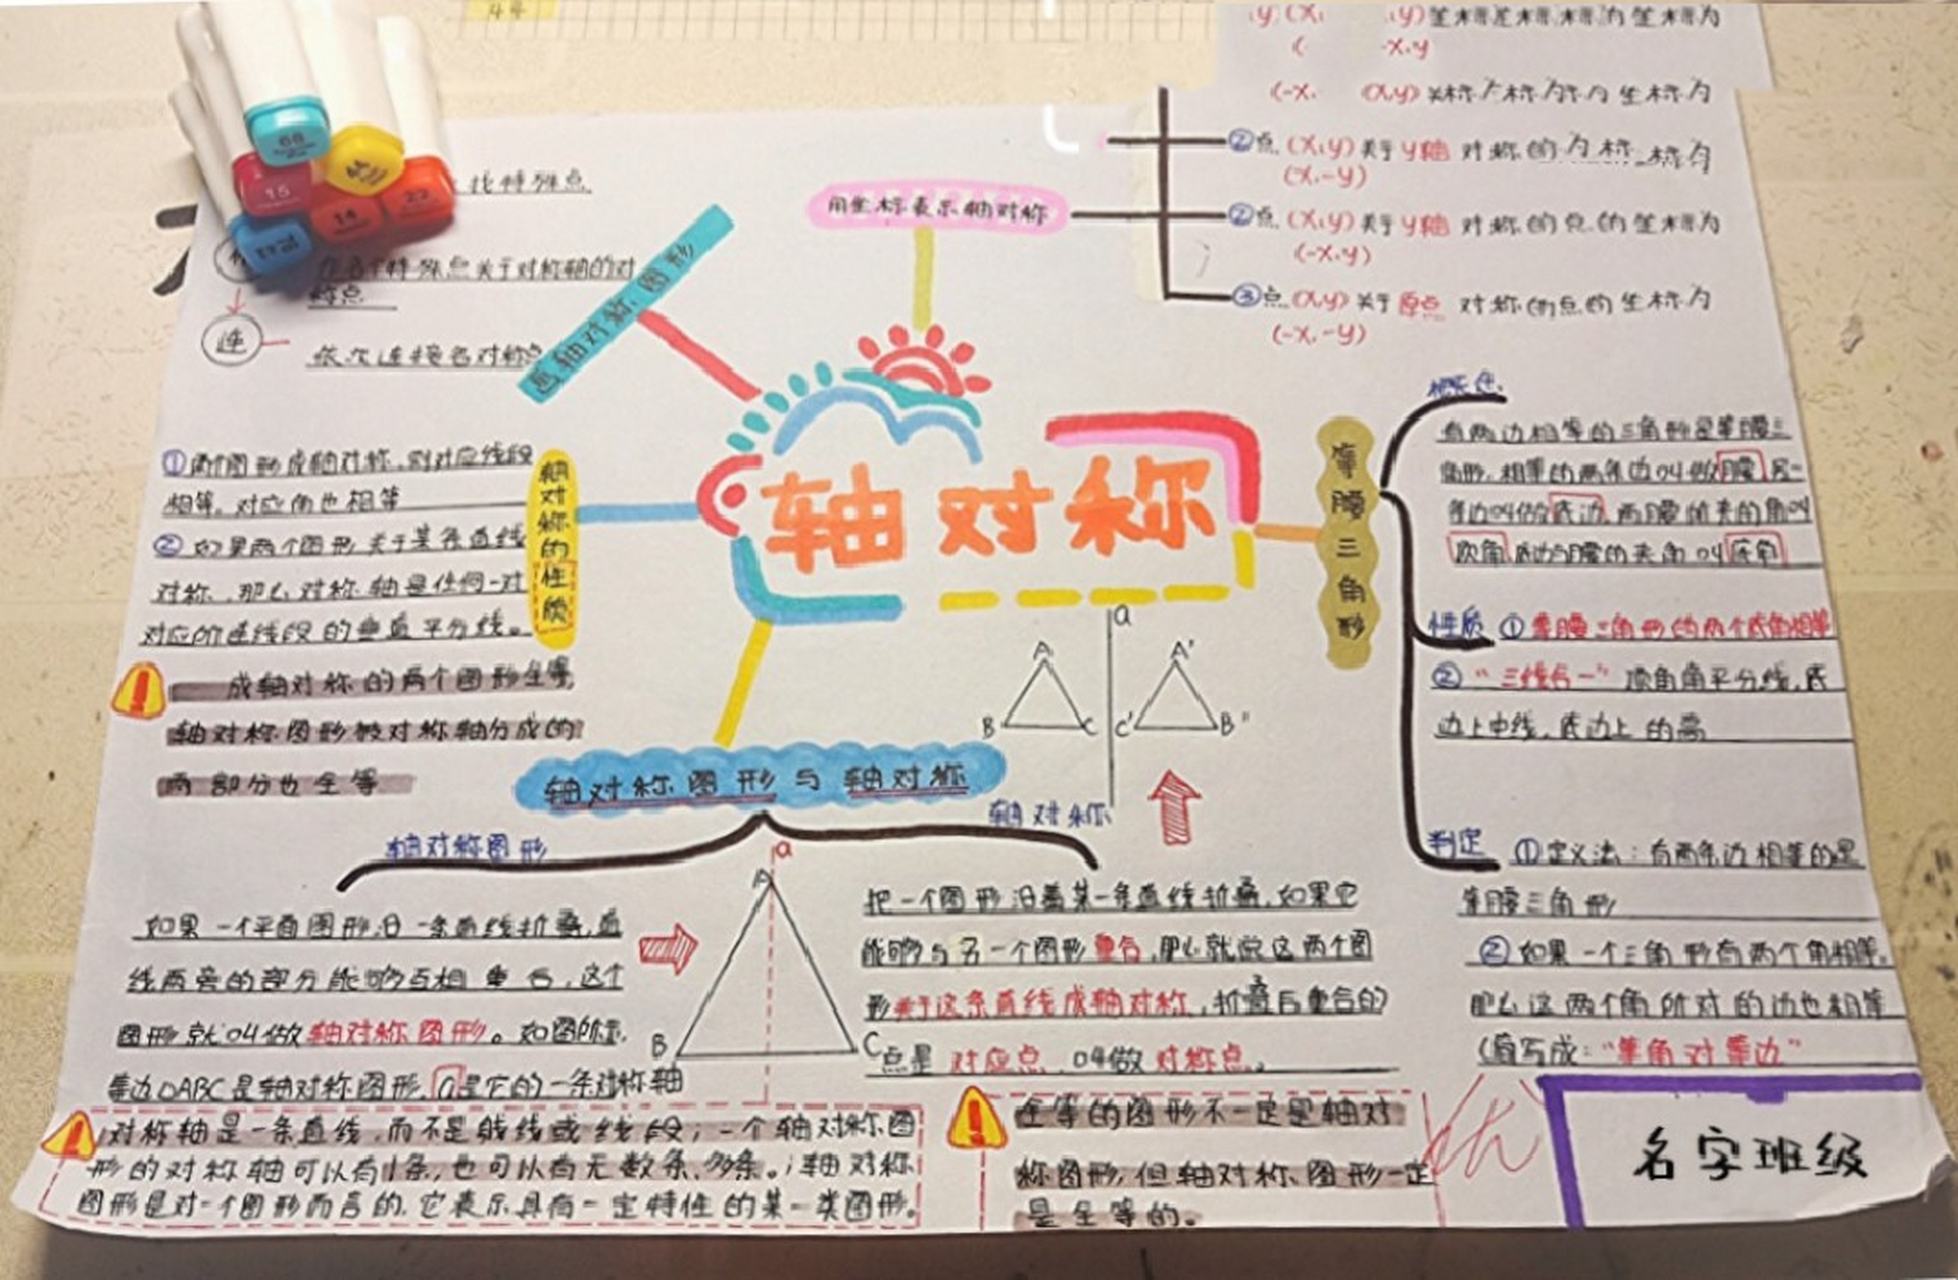 轴对称
找特殊点
作各个特殊点关于对称轴的对
称点
连
依次连接各对称点
画轴对称图形
用坐标表示轴对称
②点(x,y)关于y轴对称的
(x,-y)
②点(x,y)关于y轴对称的点的坐标为
(-x,y)
③点(x,y)关于原点对称的点的坐标为
(-x,-y)
轴对称的性质
①两个图形成轴对称,则对应线段
相等。对应角也相等
②如果两个图形关于某条直线
对称,那么对称轴是任何一对
对应所连线段的垂直平分线。
成轴对称的两个图形全等,
轴对称图形被对称轴分成的
两部分也全等
等腰三角形
概念
有两边相等的三角形是等腰三
角形,相等的两条边叫做腰,另一
条边叫做底边,两腰所夹的角叫
顶角,底边与腰的夹角叫底角
性质 ①等腰三角形的两个底角相等
②“三线合一”顶角角平分线,底
边上中线,底边上的高
判定 ①定义法:有两条边相等的是
等腰三角形
②如果一个三角形有两个角相等,
那么这两个角所对的边也相等
(简写成:“等角对等边”
轴对称图形与轴对称
轴对称图形
如果一个平面图形沿一条直线折叠,直
线两旁的部分能够互相重合,这个
图形就叫做轴对称图形。如图所示,
等边△ABC是轴对称图形,a是它的一条对称轴
a
A
B
C
轴对称
a
A
B
C
A'
C'
B"
把一个图形沿着某一条直线折叠,如果它
能够与另一个图形重合,那么就说这两个图
形关于这条直线成轴对称,折叠后重合的
点是对应点,叫做对称点。
对称轴是一条直线,而不是射线或线段;一个轴对称图
形的对称轴可以有1条,也可以有无数条、多条。;轴对称
图形是对一个图形而言的,它表示具有一定特性的某一类图形。
全等的图形不一定是轴对
称图形,但轴对称图形一定
是全等的。
优
名字班级